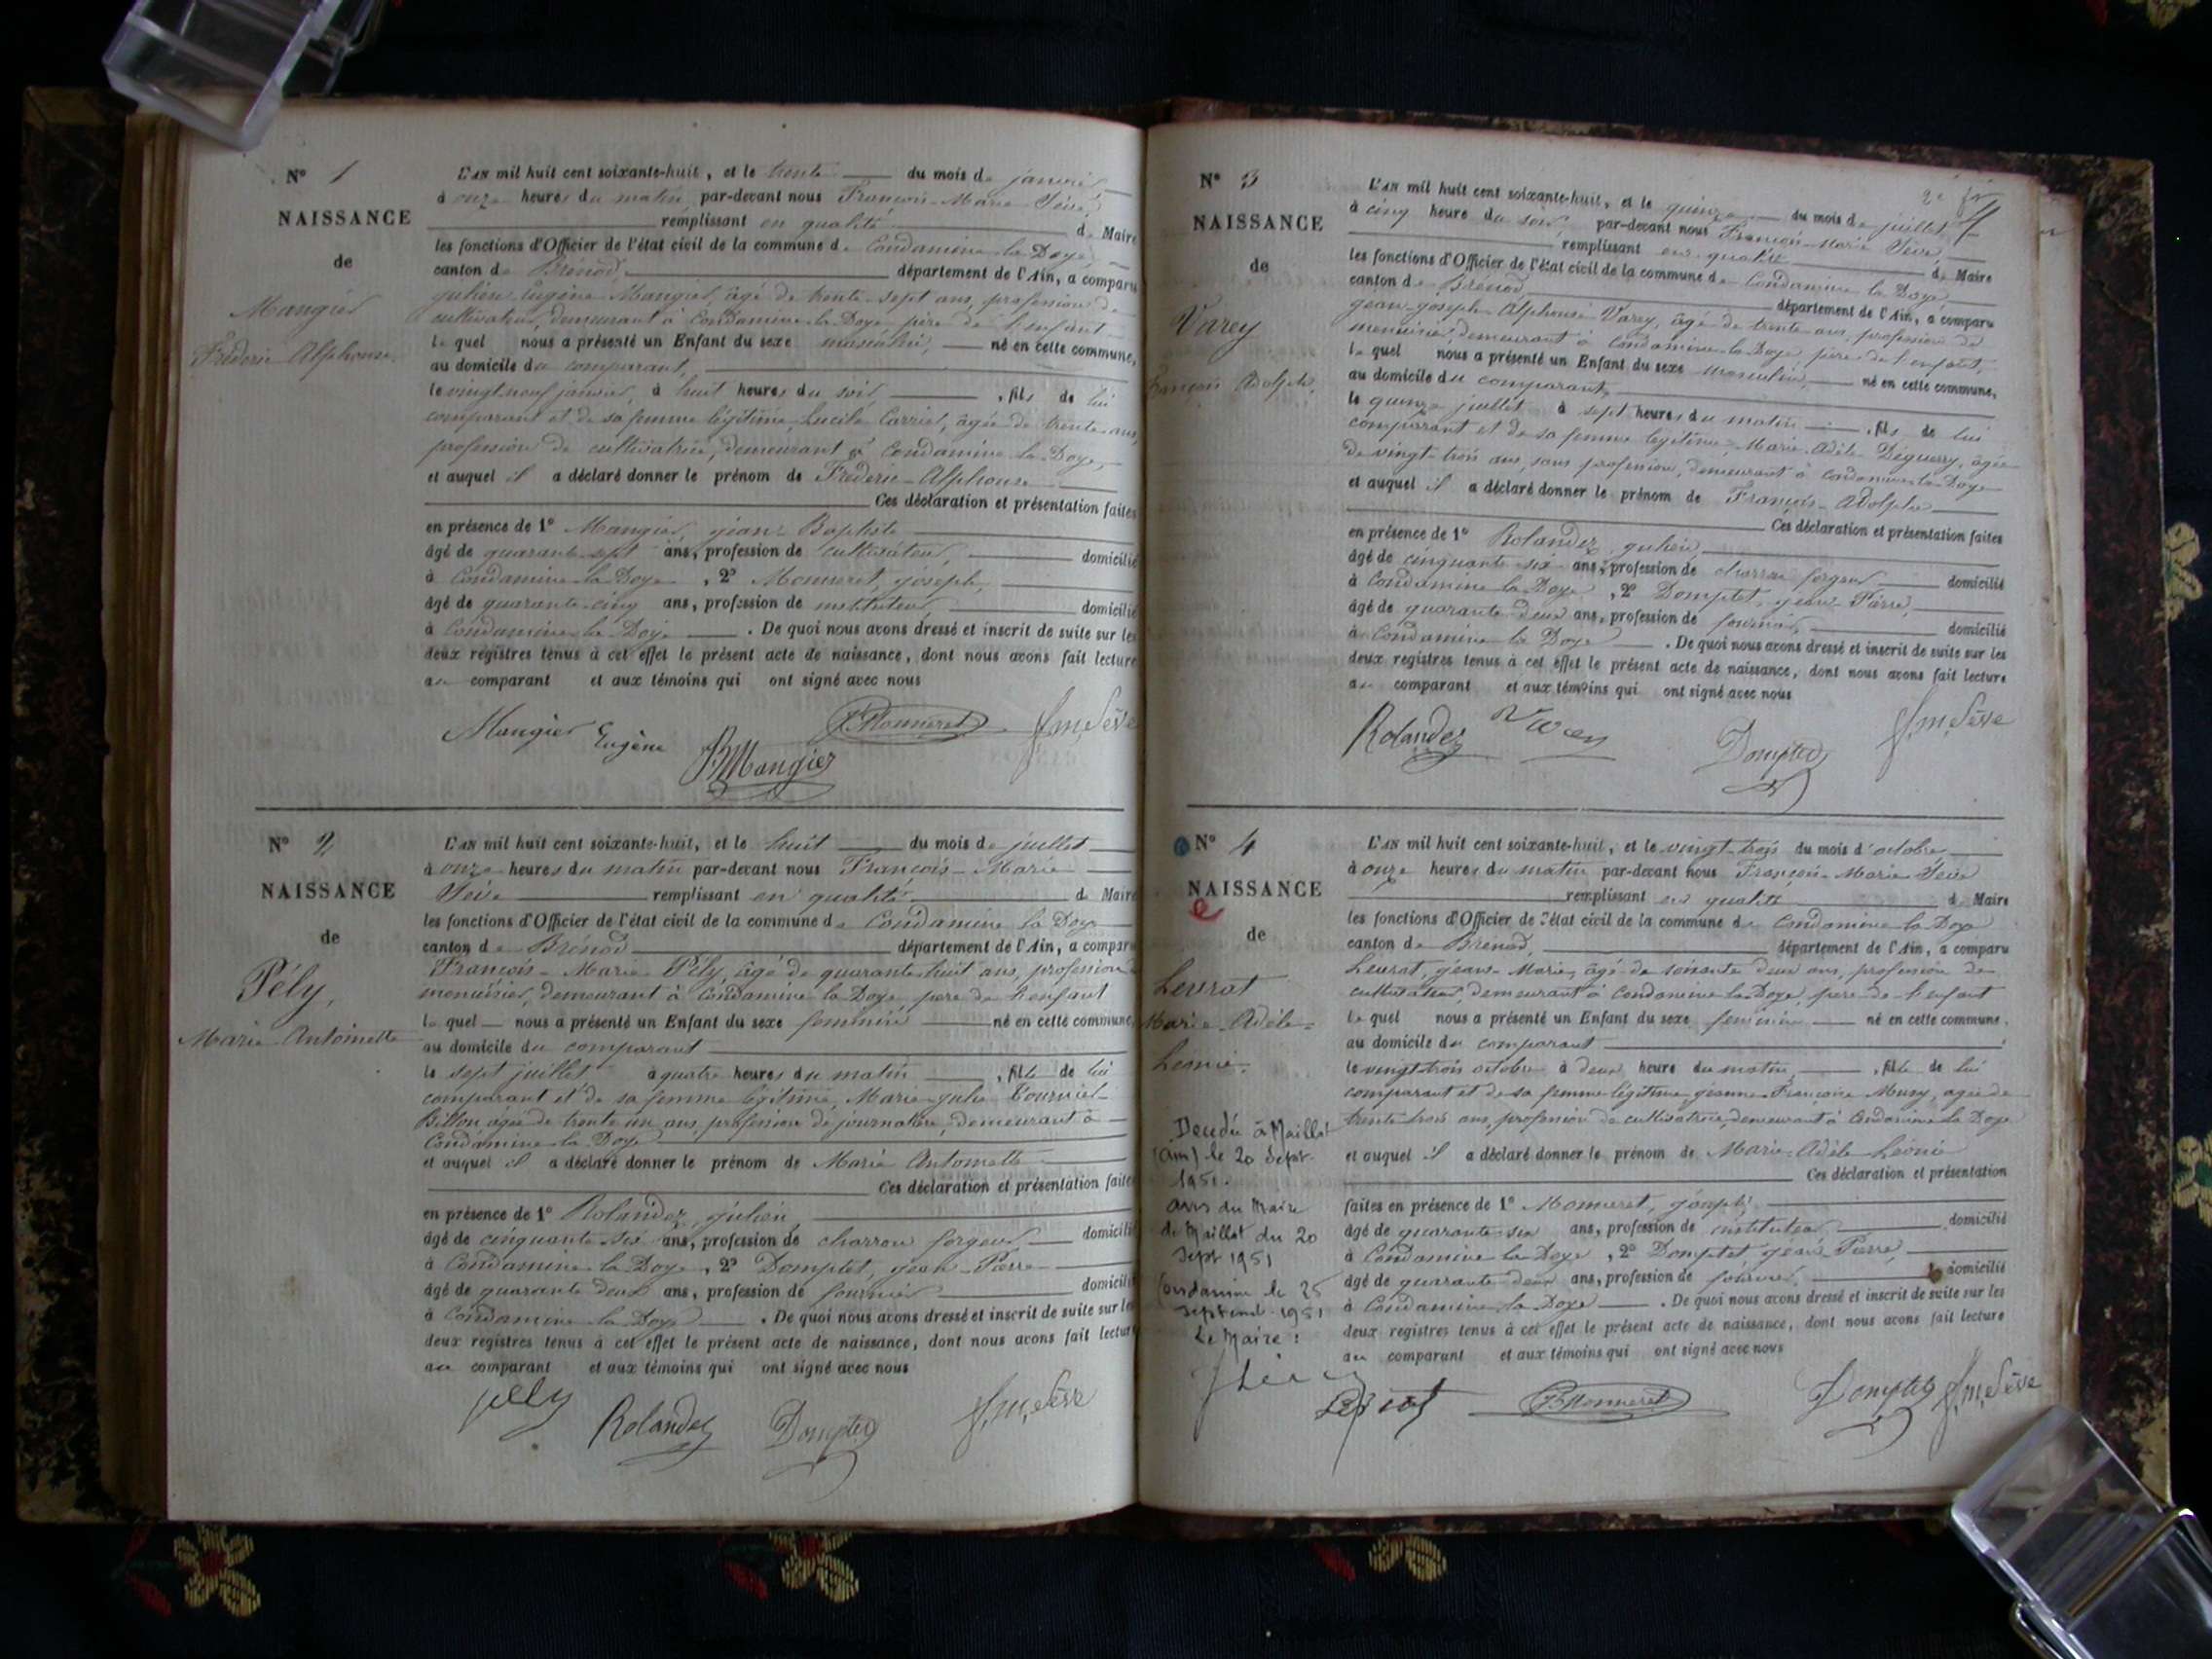 N° 1
NAISSANCE
de
Mangier
Fréderic Alphonse.
L'AN mil huit cent soixante-huit, et le trente du mois de janvier
à onze heures du matin, par-devant nous François-Marie Sève,
remplissant en qualité de Maire
les fonctions d'Officier de l'état civil de la commune de Condamine la Doye
canton de Brénod, département de l'Ain, a comparu
julien Eugène Mangier, âgé de trente-sept ans, profession de
cultivateur, demeurant à Condamine-la-Doye père de l'enfant
lequel nous a présenté un Enfant du sexe masculin, né en cette commune,
au domicile du comparant,
le vingt neuf janvier, à huit heures du soir, , fils de lui
comparant et de sa femme légitime, Lucile Carrier, âgée de trente ans,
profession de cultivatrice, demeurant à Condamine la Doye,
et auquel il a déclaré donner le prénom de Fréderic-Alphonse
Ces déclaration et présentation faites
en présence de 1° Mangier, jean Baptiste
âgé de quarante-sept ans, profession de cultivateur, domicilié
à Condamine la Doye , 2° Monneret, joseph,
âgé de quarante-cinq ans, profession de instituteur domicilié
à Condamine la Doye . De quoi nous avons dressé et inscrit de suite sur les
deux registres tenus à cet effet le présent acte de naissance, dont nous avons fait lecture
au comparant et aux témoins qui ont signé avec nous
Mangier Eugène
JBMangier
Monneret
f.m. Sève
N° 2
NAISSANCE
de
Pély,
Marie Antoinette
L'AN mil huit cent soixante-huit, et le huit du mois de juillet
à onze heures du matin par-devant nous François-Marie
Sève remplissant en qualité de Maire
les fonctions d'Officier de l'état civil de la commune de Condamine la Doye
canton de Brénod département de l'Ain, a comparu
François-Marie Pély, âgé de quarante huit ans, profession de
menuisier, demeurant à Condamine la Doye père de l'enfant
lequel nous a présenté un Enfant du sexe féminin né en cette commune,
au domicile du comparant
le sept juillet à quatre heures du matin , fille de lui
comparant et de sa femme légitime, Marie-julie Tournier-
Billon âgée de trente un ans, profession de journalière, demeurant à
Condamine la Doye
et auquel il a déclaré donner le prénom de Marie Antoinette
Ces déclaration et présentation faites
en présence de 1° Rolandez, julien,
âgé de cinquante-six ans, profession de charron forgeur domicilié
à Condamine la Doye , 2° Domptet, jean-Pierre
âgé de quarante deux ans, profession de fournier domicilié
à Condamine la Doye . De quoi nous avons dressé et inscrit de suite sur les
deux registres tenus à cet effet le présent acte de naissance, dont nous avons fait lecture
au comparant et aux témoins qui ont signé avec nous
pély Rolandez Domptet f.m. Sève
N° 3
NAISSANCE
de
Varey
François Adolphe.
L'AN mil huit cent soixante-huit, et le quinze du mois de juillet
à cinq heure du soir, par-devant nous François-Marie Sève,
remplissant en qualité de Maire
les fonctions d'Officier de l'état civil de la commune de Condamine la Doye
canton de Brénod, département de l'Ain, a comparu
jean-joseph-Alphonse Varey, âgé de trente ans, profession de
menuisier, demeurant à Condamine-la-Doye père de l'enfant,
lequel nous a présenté un Enfant du sexe masculin, né en cette commune,
au domicile du comparant,
le quinze juillet à sept heures du matin , fils de lui
comparant et de sa femme légitime, Marie-Adèle Déguerry, âgée
de vingt-trois ans, sans profession, demeurant à Condamine-la-Doye
et auquel il a déclaré donner le prénom de François-Adolphe
Ces déclaration et présentation faites
en présence de 1° Rolandez, julien,
âgé de cinquante-six ans, profession de charron forgeur domicilié
à Condamine la Doye , 2° Domptet, jean-Pierre,
âgé de quarante deux ans, profession de fournier, domicilié
à Condamine la Doye . De quoi nous avons dressé et inscrit de suite sur les
deux registres tenus à cet effet le présent acte de naissance, dont nous avons fait lecture
au comparant et aux témoins qui ont signé avec nous
Rolandez Varey Domptet f.m. Sève
N° 4
NAISSANCE
e
de
Levrat
Marie-Adèle-
Léonie.
Décédée à Maillat
(Ain) le 20 Sept.
1951.
avis du Maire
de Maillat du 20
Sept 1951
Condamine le 25
septemb. 1951
Le Maire :
L'AN mil huit cent soixante-huit, et le vingt-trois du mois d'octobre
à onze heures du matin par-devant nous François-Marie Sève
remplissant en qualité de Maire
les fonctions d'Officier de l'état civil de la commune de Condamine la Doye
canton de Brénod, département de l'Ain, a comparu
Levrat, jean-Marie, âgé de soixante deux ans, profession de
cultivateur, demeurant à Condamine la Doye, père de l'enfant
lequel nous a présenté un Enfant du sexe féminin né en cette commune,
au domicile du comparant
le vingt-trois octobre à deux heure du matin, , fille de lui
comparant et de sa femme légitime jeanne-Françoise Muny, âgée de
trente trois ans, profession de cultivatrice, demeurant à Condamine la Doye
et auquel il a déclaré donner le prénom de Marie-Adèle Léonie
Ces déclaration et présentation
faites en présence de 1° Monneret, joseph,
âgé de quarante-six ans, profession de instituteur domicilié
à Condamine la Doye , 2° Domptet jean Pierre,
âgé de quarante deux ans, profession de fournier, domicilié
à Condamine la Doye . De quoi nous avons dressé et inscrit de suite sur les
deux registres tenus à cet effet le présent acte de naissance, dont nous avons fait lecture
au comparant et aux témoins qui ont signé avec nous
Levrat Monneret Domptet f.m. Sève